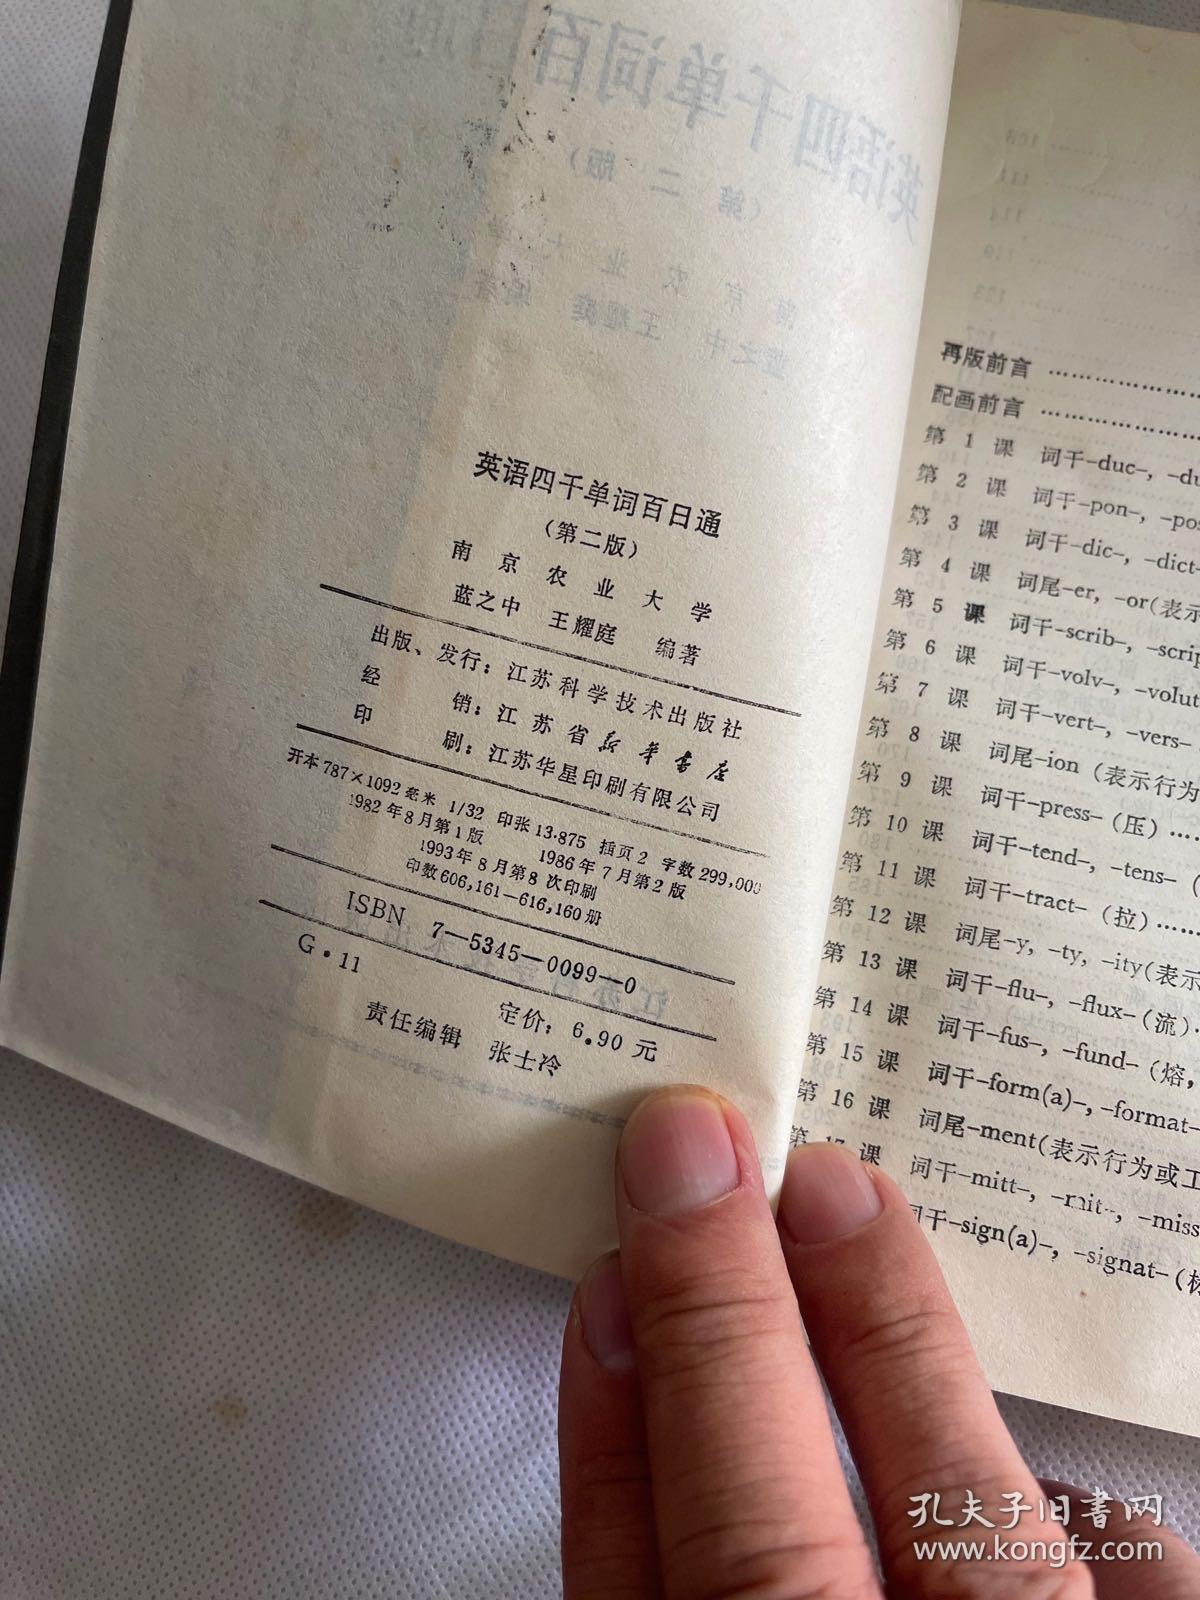 英语四千单词百日通
（第二版）
南京农业大学
蓝之中 王耀庭 编著
出版、发行：江苏科学技术出版社
经 销：江苏省新华书店
印 刷：江苏华星印刷有限公司
开本787×1092毫米 1/32 印张13.875 插页2 字数299,000
1982年8月第1版 1986年7月第2版
1993年8月第8次印刷
印数606,161—616,160册
ISBN 7—5345—0099—0
G·11
定价：6.90元
责任编辑 张士冷
再版前言 ……………………
配画前言 ……………………
第 1 课 词干-duc-，-du
第 2 课 词干-pon-，-pos
第 3 课 词干-dic-，-dict-
第 4 课 词尾-er，-or(表示
第 5 课 词干-scrib-，-scrip
第 6 课 词干-volv-，-volut
第 7 课 词干-vert-，-vers-
第 8 课 词尾-ion（表示行为
第 9 课 词干-press-（压）……
第 10 课 词干-tend-，-tens-（
第 11 课 词干-tract-（拉）……
第 12 课 词尾-y，-ty，-ity(表示
第 13 课 词干-flu-，-flux-（流）·
第 14 课 词干-fus-，-fund-（熔，
第 15 课 词干-form(a)-，-format-
第 16 课 词尾-ment(表示行为或工
第 17 课 词干-mitt-，-mit-，-miss
词干-sign(a)-，-signat-（标
孔夫子旧书网
www.kongfz.com